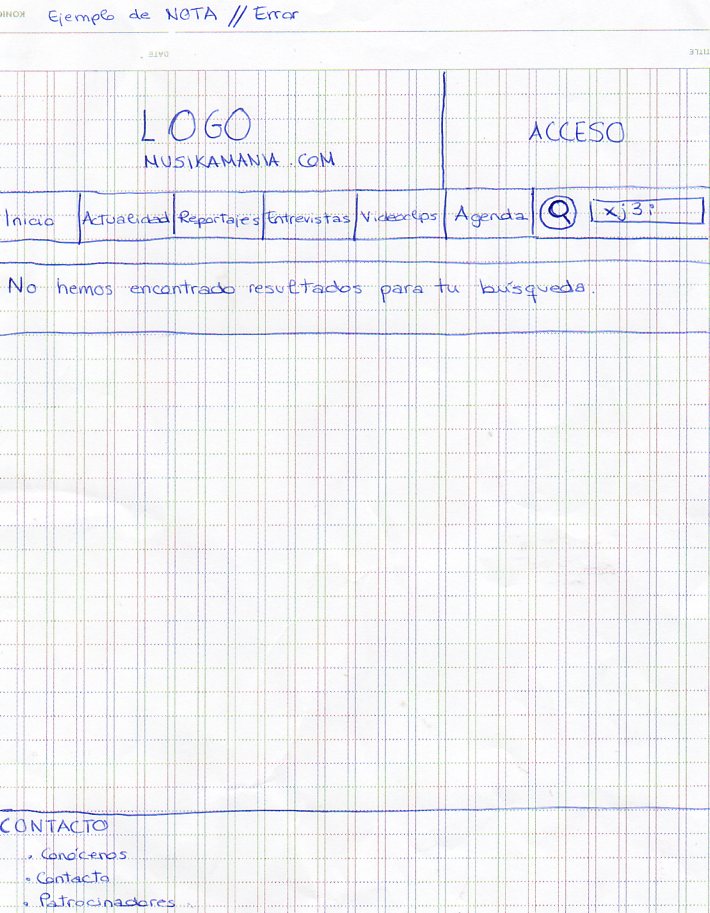 Ejemplo de NOTA // Error
DATE
LOGO
MUSIKAMANIA.COM
ACCESO
Inicio Actualidad Reportajes Entrevistas Videoclips Agenda xj3i
No hemos encontrado resultados para tu búsqueda.
CONTACTO
. Conócenos
. Contacto
. Patrocinadores